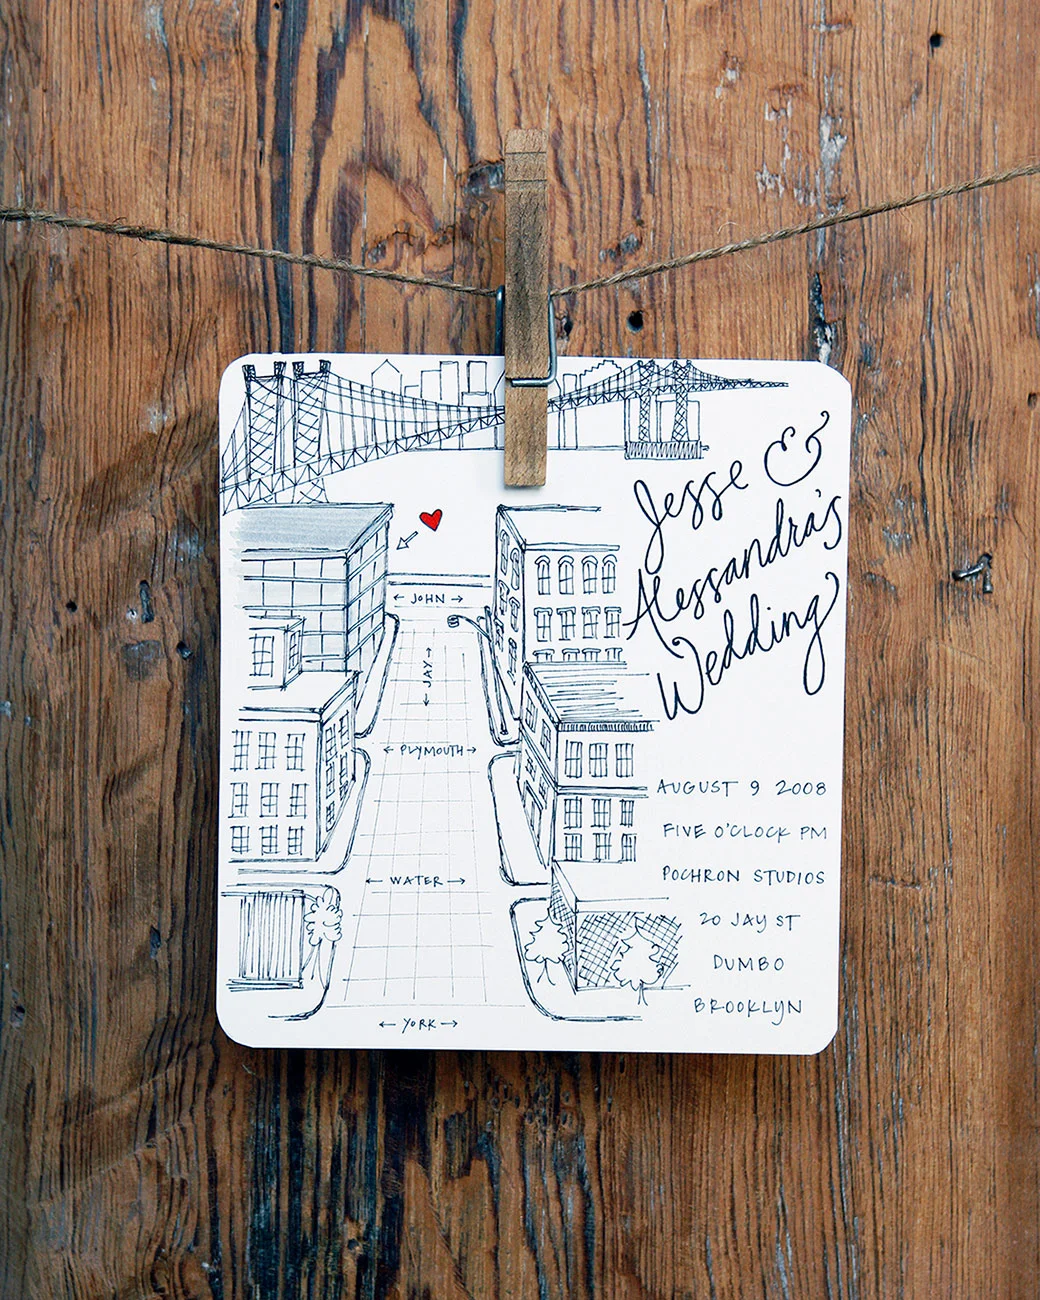 Jesse &
Alessandra's
Wedding
← JOHN →
← JAY →
← PLYMOUTH →
AUGUST 9 2008
FIVE O'CLOCK PM
POCHRON STUDIOS
← WATER →
20 JAY ST
DUMBO
BROOKLYN
← YORK →